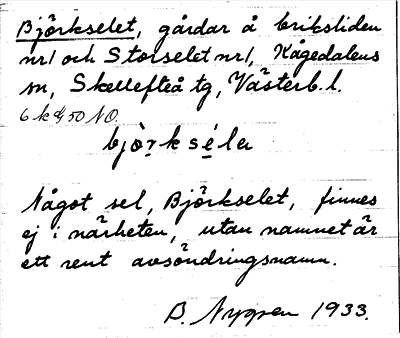 Björkselet, gårdar å briksliden
nr1 och Storselet nr1, Kågedalens
sn, Skellefteå tg, Västerb. l.
6 k 4/50 NO.
bjò̤rksélɐ
Något sel, Björkselet, finnes
ej i närheten, utan namnet är
ett rent avsöndringsnamn.
B. Nygren 1933.